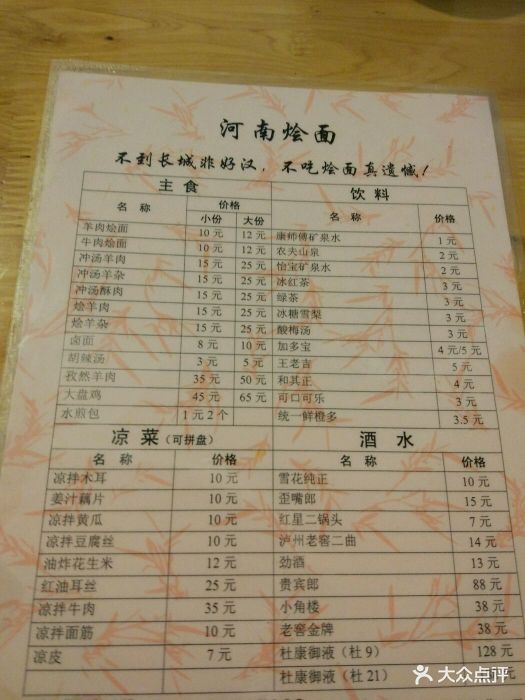 河南烩面
不到长城非好汉，不吃烩面真遗憾！
主食
名称 价格
小份 大份
羊肉烩面 10元 12元
牛肉烩面 10元 12元
冲汤羊肉 15元 25元
冲汤羊杂 15元 25元
冲汤酥肉 15元 25元
烩羊肉 15元 25元
烩羊杂 15元 25元
卤面 8元 10元
胡辣汤 3元 5元
孜然羊肉 35元 50元
大盘鸡 45元 65元
水煎包 1元2个
饮料
名称 价格
康师傅矿泉水 1元
农夫山泉 2元
怡宝矿泉水 2元
冰红茶 3元
绿茶 3元
冰糖雪梨 3元
酸梅汤 3元
加多宝 4元/5元
王老吉 5元
和其正 4元
可口可乐 3元
统一鲜橙多 3.5元
凉菜（可拼盘）
名称 价格
凉拌木耳 10元
姜汁藕片 10元
凉拌黄瓜 10元
凉拌豆腐丝 10元
油炸花生米 12元
红油耳丝 25元
凉拌牛肉 35元
凉拌面筋 10元
凉皮 7元
酒水
名称 价格
雪花纯正 10元
歪嘴郎 15元
红星二锅头 7元
泸州老窖二曲 14元
劲酒 13元
贵宾郎 88元
小角楼 38元
老窖金牌 38元
杜康御液（杜9） 128元
杜康御液（杜21）
大众点评